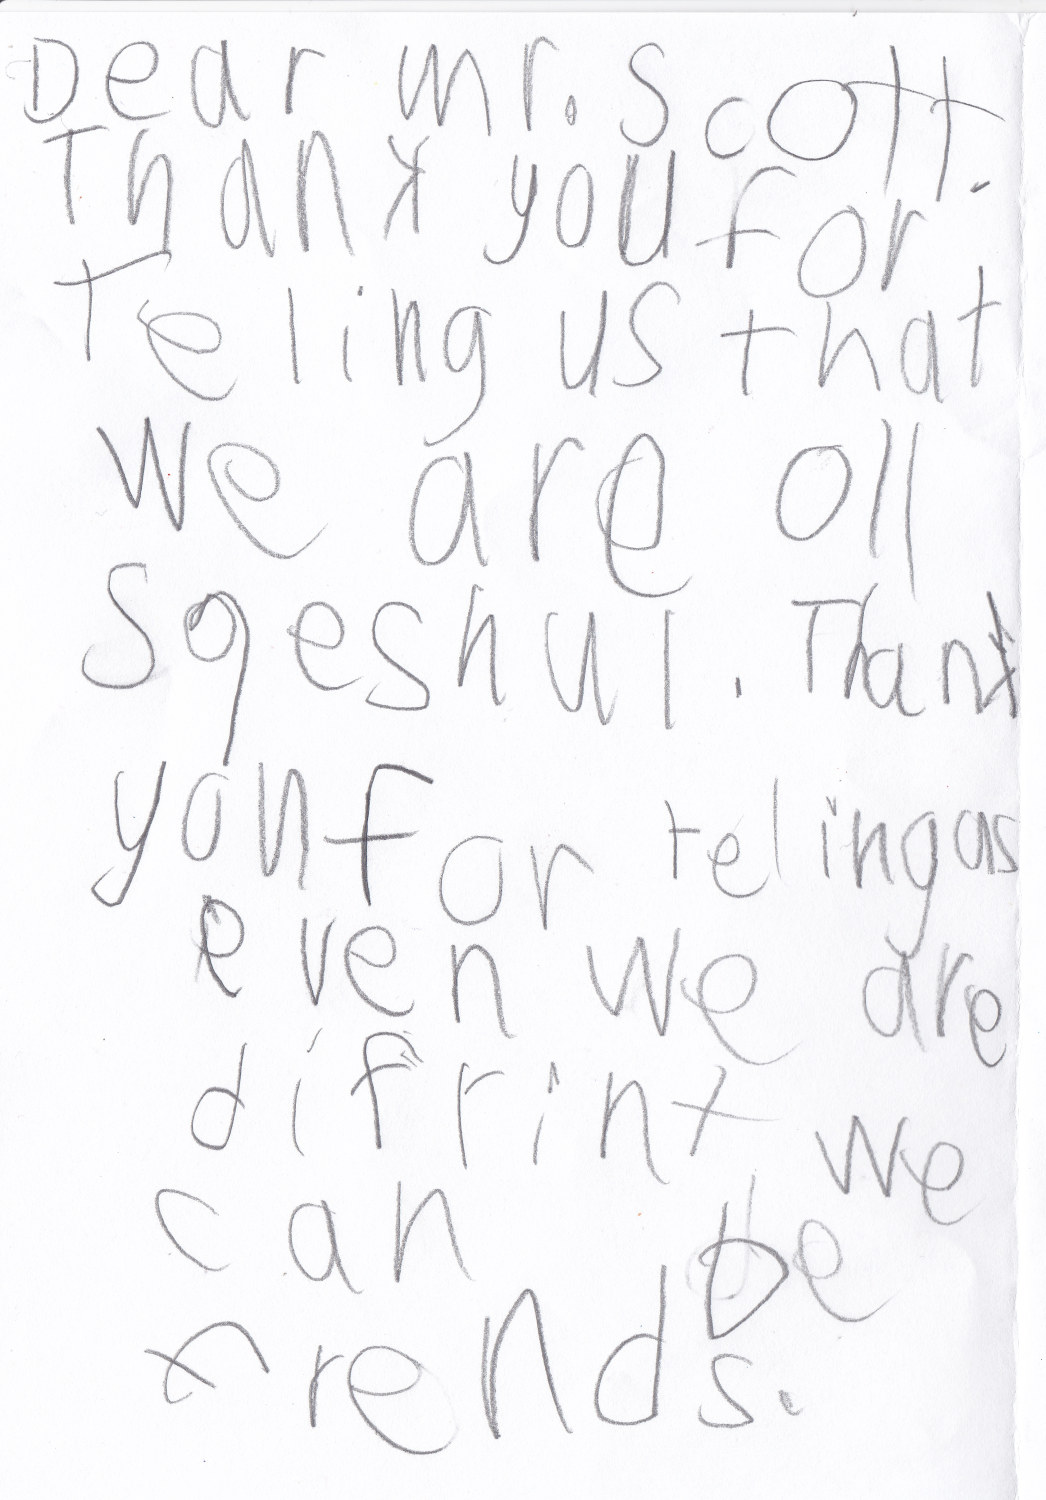 Dear mr. Scott.
Thank you for
Teling us that
we are oll
Sqeshul. Thank
you for teling as
even we are
difrint we
can be
frends.